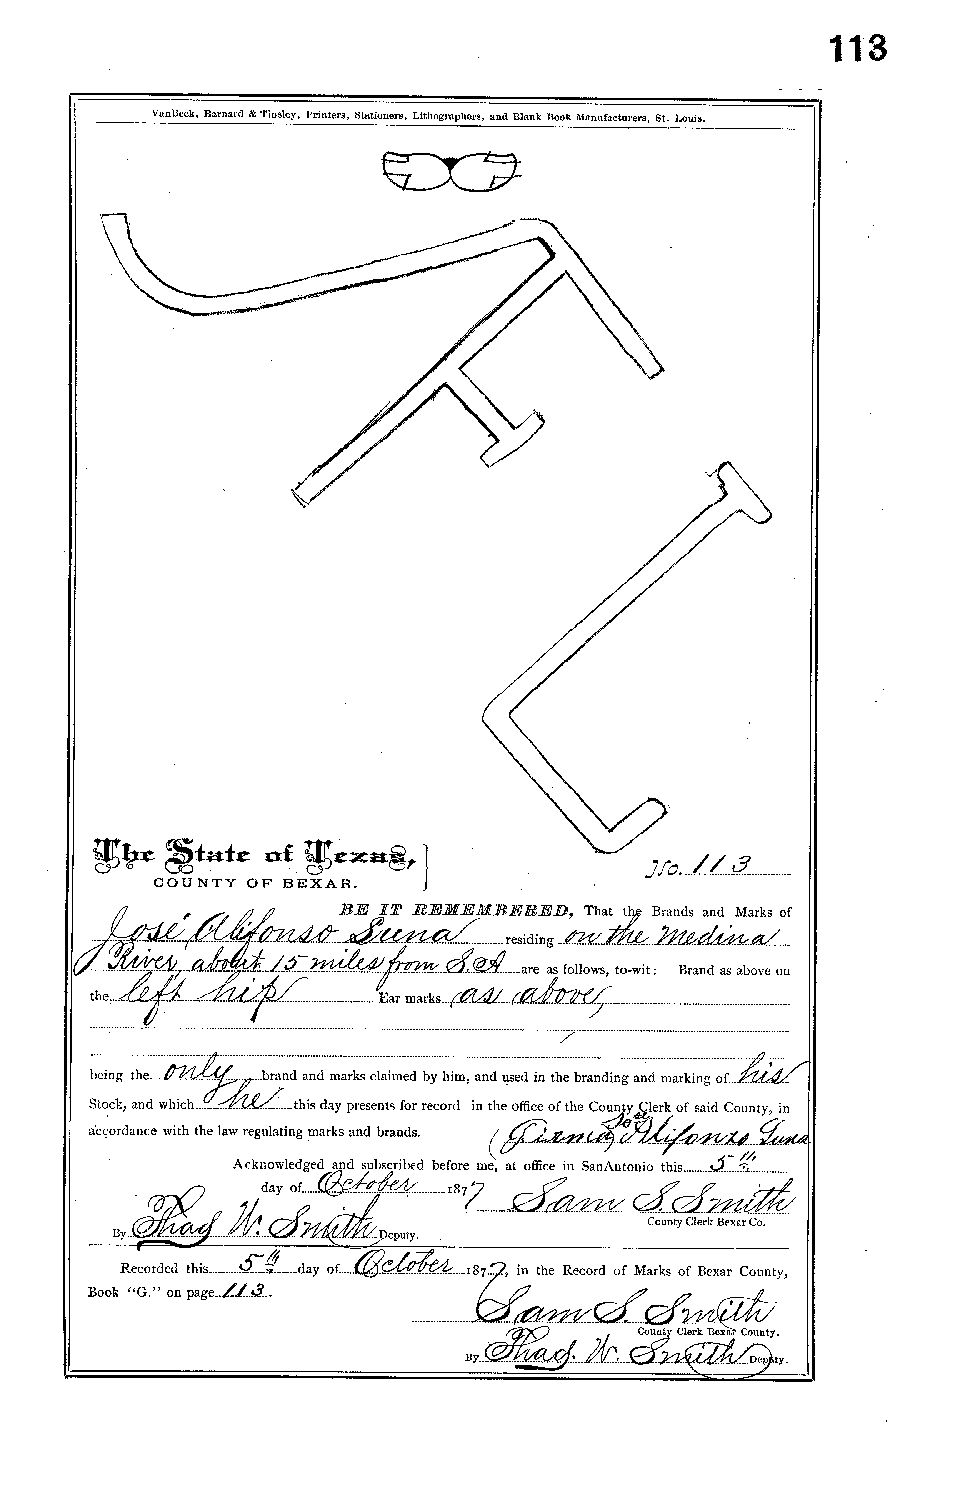 113
VanBeek, Barnard & Tinsley, Printers, Stationers, Lithographers, and Blank Book Manufacturers, St. Louis.
The State of Texas,
COUNTY OF BEXAR.
No. 113
BE IT REMEMBERED, That the Brands and Marks of
José Alifonso Luna residing on the Medina
River about 15 miles from S.A are as follows, to-wit: Brand as above on
the left hip Ear marks as above,
being the only brand and marks claimed by him, and used in the branding and marking of his
Stock, and which he this day presents for record in the office of the County Clerk of said County, in
accordance with the law regulating marks and brands.
José Alifonzo Luna
Acknowledged and subscribed before me, at office in SanAntonio this 5th
day of October 1877 Sam S. Smith
County Clerk Bexar Co.
By Thad W. Smith Deputy.
Recorded this 5th day of October 1877, in the Record of Marks of Bexar County,
Book "G." on page 113.
Sam S. Smith
County Clerk Bexar County.
By Thad. W. Smith Deputy.